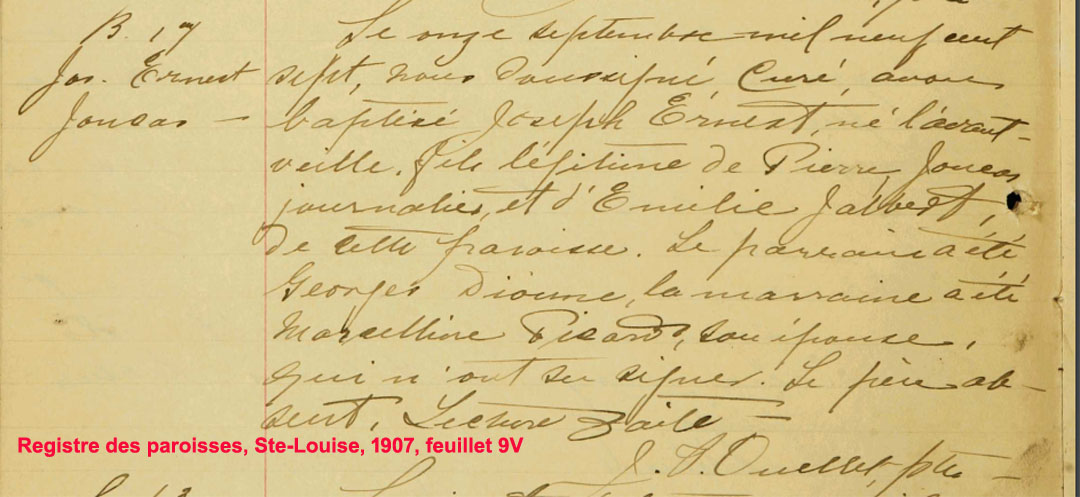 B. 17
Jos. Ernest
Joncas —
Le onze septembre mil neuf cent
sept, nous soussigné, Curé, avons
baptisé Joseph Ernest, né l'avant-
veille, fils légitime de Pierre Joncas
journalier, et d'Emilie Jalbert,
de cette paroisse. Le parrain a été
Georges Dionne, la marraine a été
Marcelline Picard, son épouse,
qui n'ont su signer. Le père ab-
sent. Lecture faite —
J. A. Ouellet, ptre —
Registre des paroisses, Ste-Louise, 1907, feuillet 9V